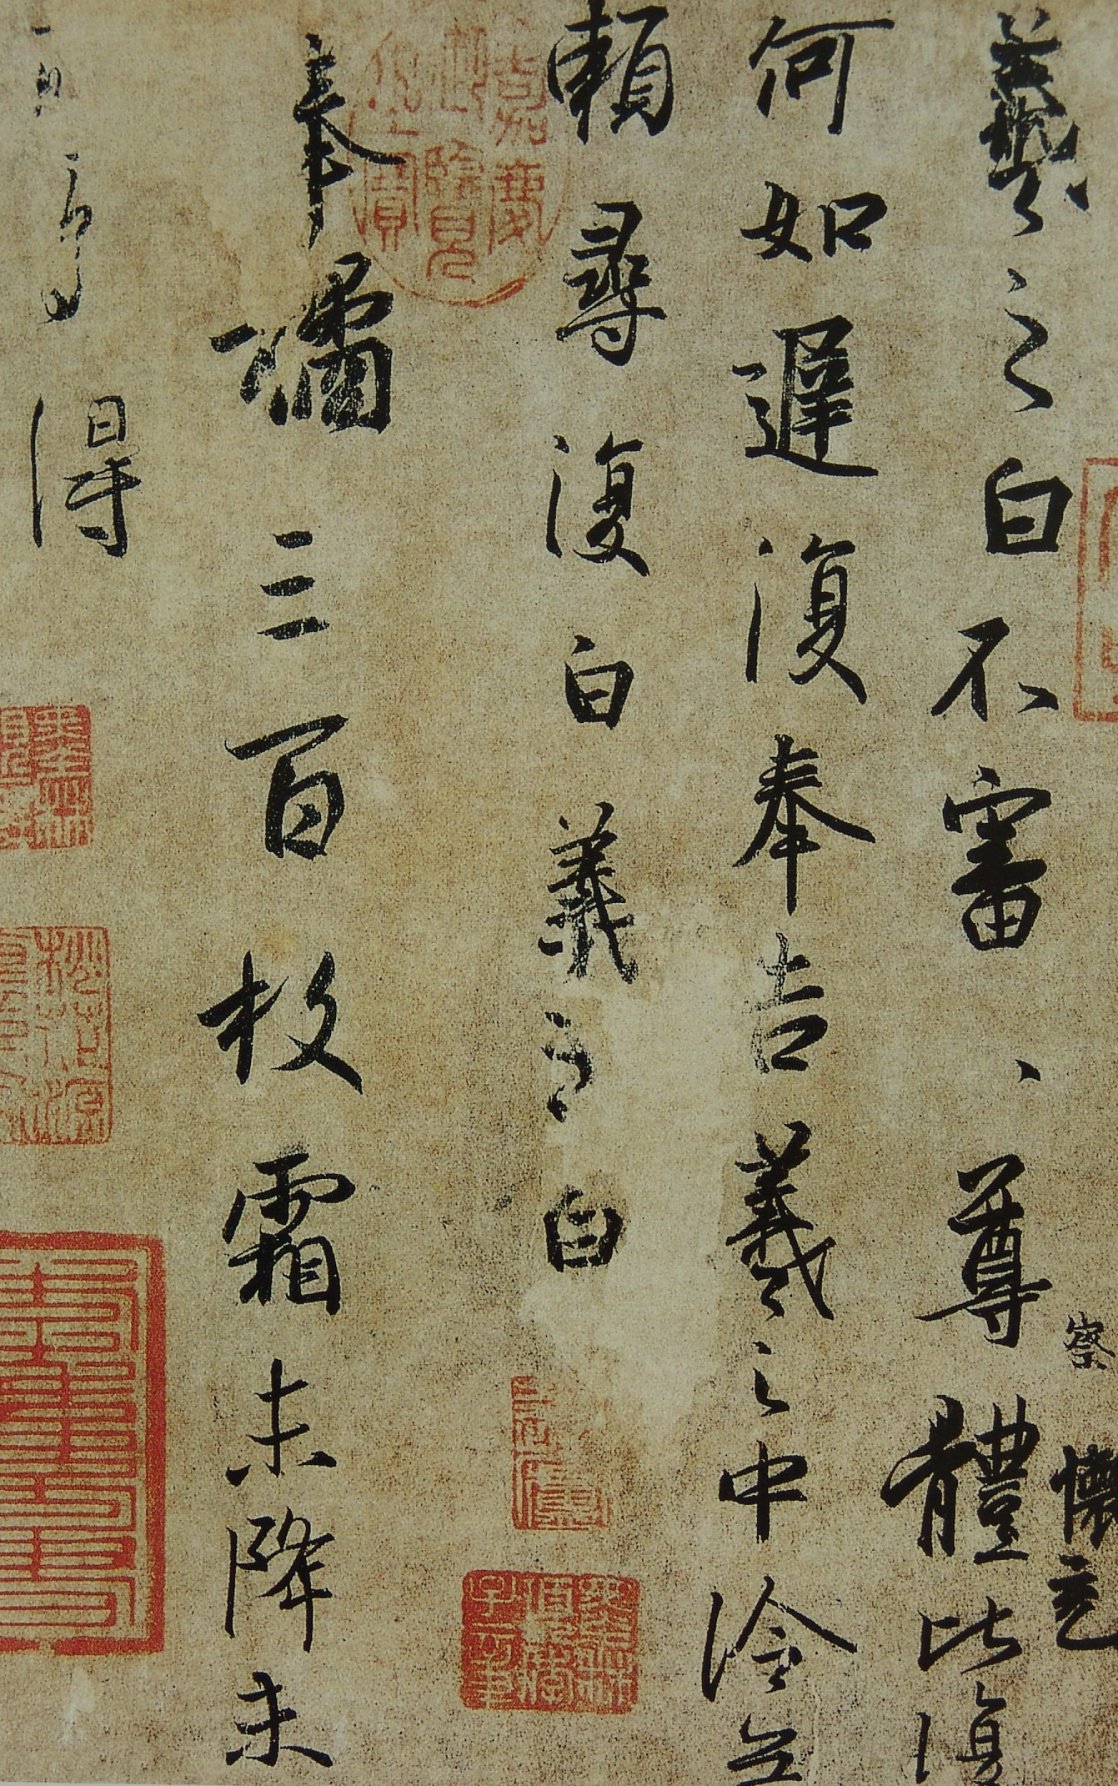 察 懷充
羲之白不審、尊體比復
何如遲復奉告羲之中冷無
賴尋復白羲之白
嘉慶
御覽
之寶
奉橘三百枚霜未降未
可多得